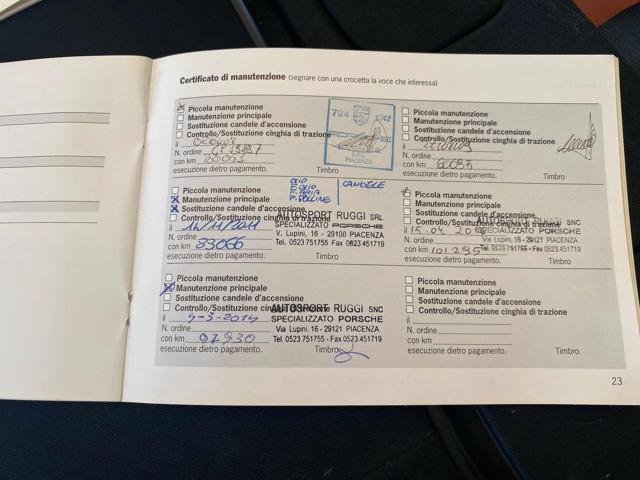 Certificato di manutenzione (segnare con una crocetta la voce che interessa)
Piccola manutenzione
Manutenzione principale
Sostituzione candele d'accensione
Controllo/Sostituzione cinghia di trazione
il
N. ordine
con km
esecuzione dietro pagamento. Timbro
784
PIACENZA
Piccola manutenzione
Manutenzione principale
Sostituzione candele d'accensione
Controllo/Sostituzione cinghia di trazione
il
N. ordine
con km
esecuzione dietro pagamento. Timbro
Piccola manutenzione
Manutenzione principale
Sostituzione candele d'accensione
Controllo/Sostituzione cinghia di trazione
OLIO
F. OLIO
F. ARIA
F. POLLINE
CANDELE
il 11/11/2011
N. ordine
con km 83066
esecuzione dietro pagamento.
AUTOSPORT RUGGI SRL
SPECIALIZZATO PORSCHE
V. Lupini, 16 - 29100 PIACENZA
Tel. 0523 751755 Fax 0623.451719
Piccola manutenzione
Manutenzione principale
Sostituzione candele d'accensione
Controllo/Sostituzione cinghia di trazione
il 15.04
N. ordine
con km 101295
esecuzione dietro pagamento. Timbro
AUTOSPORT RUGGI SNC
SPECIALIZZATO PORSCHE
Via Lupini, 16 - 29121 PIACENZA
Tel. 0523.751755 - Fax 0523.451719
Piccola manutenzione
Manutenzione principale
Sostituzione candele d'accensione
Controllo/Sostituzione cinghia di trazione
il 5-3-2014
N. ordine
con km 97930
esecuzione dietro pagamento. Timbro
AUTOSPORT RUGGI SNC
SPECIALIZZATO PORSCHE
Via Lupini, 16 - 29121 PIACENZA
Tel. 0523.751755 - Fax 0523.451719
Piccola manutenzione
Manutenzione principale
Sostituzione candele d'accensione
Controllo/Sostituzione cinghia di trazione
il
N. ordine
con km
esecuzione dietro pagamento. Timbro
23